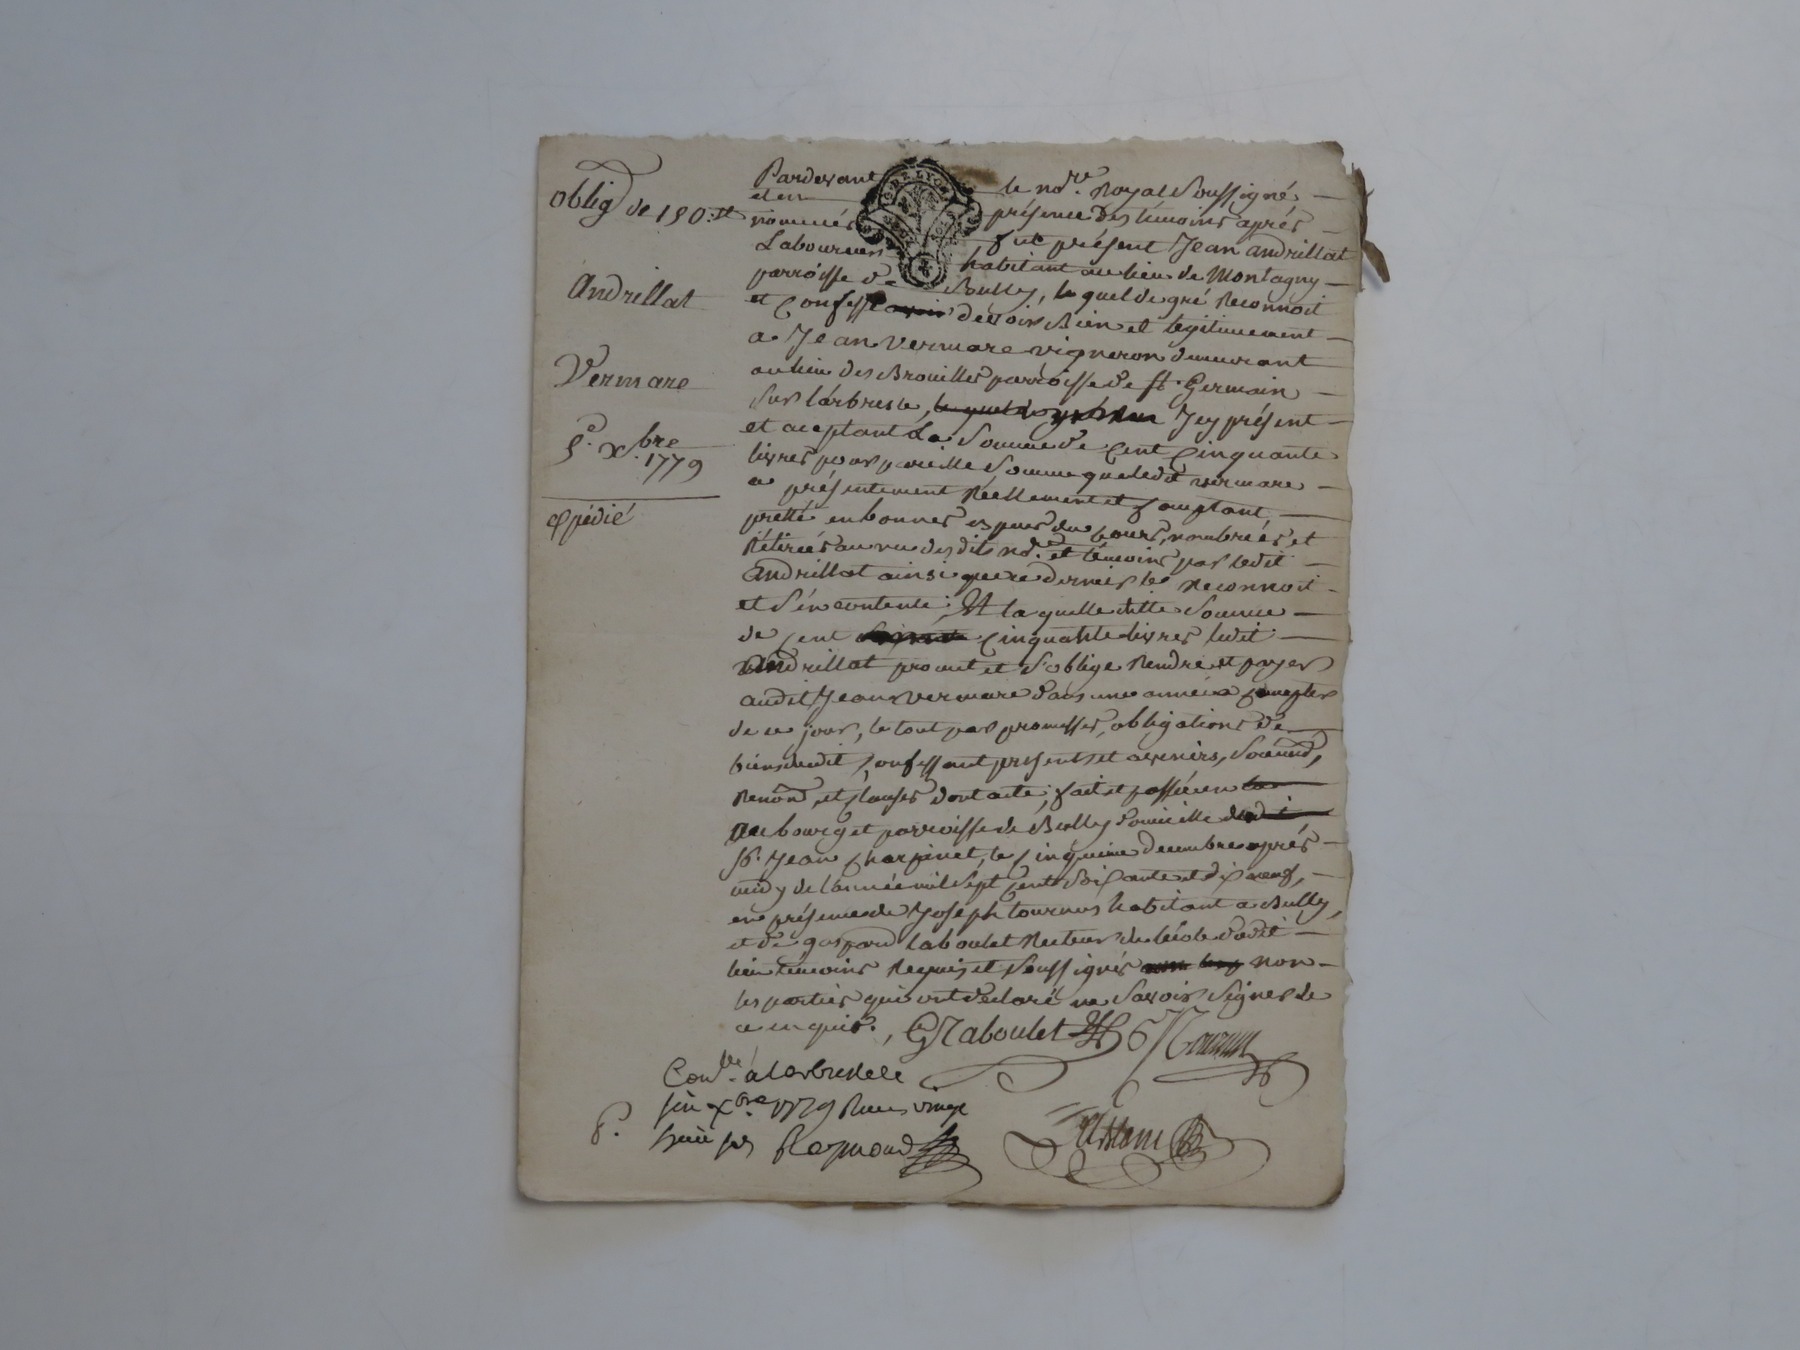 oblig de 150.lt
Andrillat
Vermare
5e. Xbre. 1779
expédié
G. DE LYON
Pardevant le nore. Royal Soussigné
et en présence des témoins après
nommés fut présent Jean andrillat
Laboureur habitant au lieu de Montagny
parroisse de Bully, lequel de gré reconnoit
et confesse devoir Bien et légitimement
a Jean vermare vigneron demeurant
au lieu des Brouilles parroisse de st. Germain
sur larbresle, Icy présent
et aceptant La Somme de Cent Cinquante
livres pour pareille Somme que ledt vermare
a présentement réellement et Comptant
pretté en bonnes espèces du cours, nombrées et
rétirées au vu desdits nore. et témoins par ledit
andrillat ainsi que ce dernier le reconnoit
et s'en contente; Et laquelle ditte Somme
de Cent Cinquante livres ledit
andrillat promet et s'oblige rendre et payer
audit Jean vermare dans une année a Compter
de ce jour, le tout par promesses, obligations de
biens dudit Confessant présents et avenirs, Soumd,
renond, et Clauses dont acte; fait et passé en
au bourg et parroisse de Bully domicille
sr. Jean, le Cinquième decembre après
midy de l'année mil sept Cents Soixante et dix neuf,
en présence de Joseph tournus habitant a Bully,
et de gaspard laboulet Recteur de l'école dudit
lieu témoins Requis et Soussignés non
les parties qui ont déclaré ne Savoir Signer de
ce enquis. G Laboulet Tournus
Conllé. à larbresle
Xbre 1779 Reçu vingt
Raymond